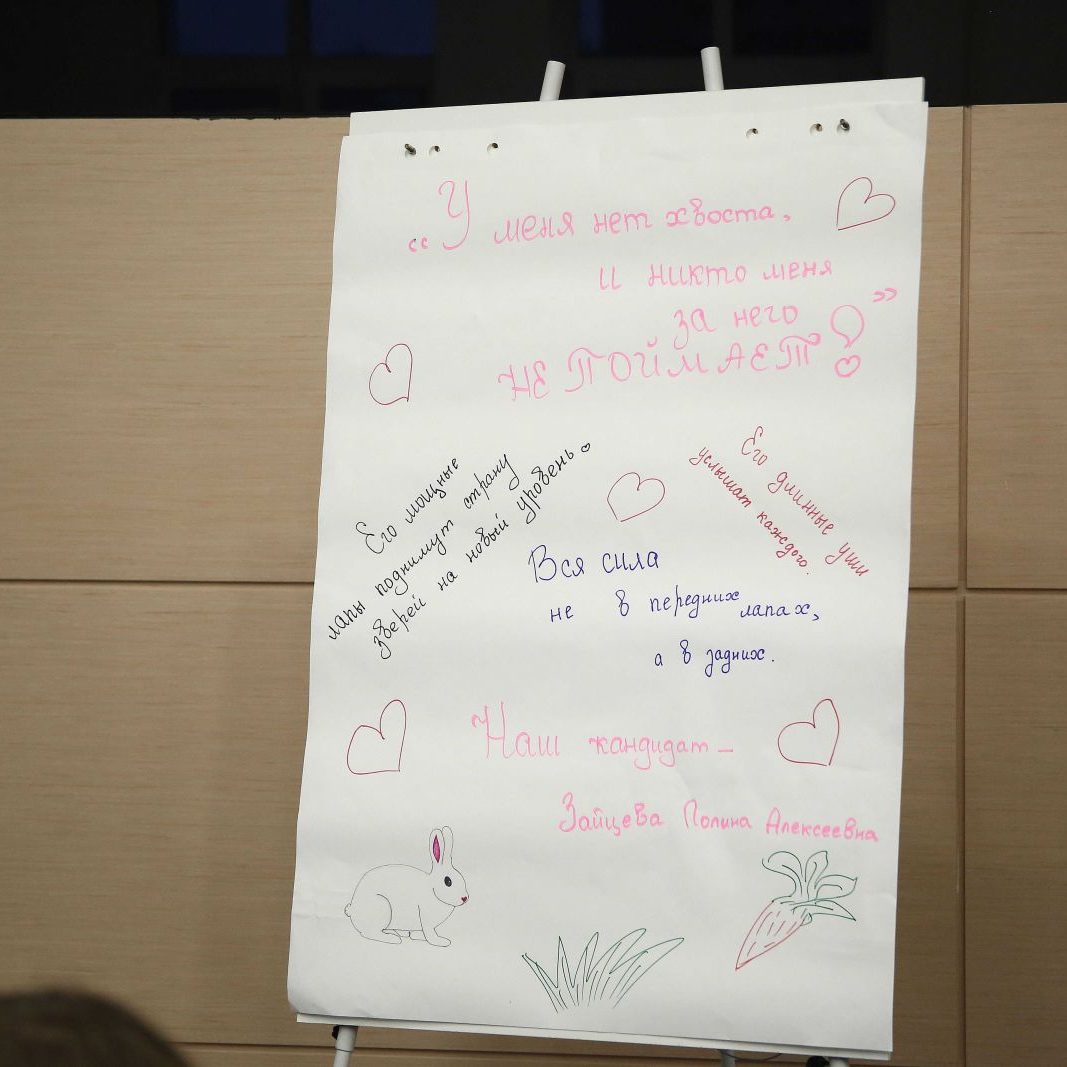 „У меня нет хвоста,
и никто меня
за него
НЕ ПОЙМАЕТ!”
Его мощные
лапы поднимут страну
зверей на новый уровень
Его длинные уши
услышат каждого.
Вся сила
не в передних лапах,
а в задних.
Наш кандидат –
Зайцева Полина Алексеевна